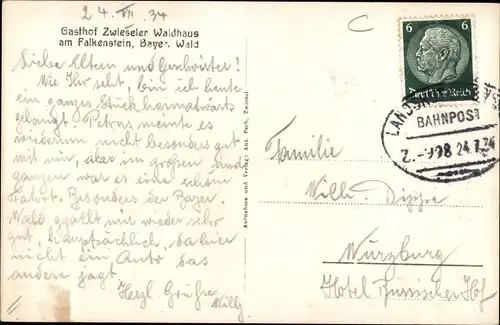 24. VII. 34
Gasthof Zwieseler Waldhaus
am Falkenstein, Bayer. Wald
Liebe Eltern und Geschwister!
Wie Ihr seht, bin ich heute
ein ganzes Stück heimatwärts
gelangt. Petrus meinte es
wiederum nicht besonders gut
mit mir, aber im großen und
ganzen war es eine schöne
Fahrt. Besonders der Bayer.
Wald gefällt mir wieder sehr
gut, hauptsächlich, da hier
nicht ein Auto das
andere jagt.
Herzl. Grüße
Willy
Aufnahme und Verlag: Ant. Pech, Zwiesel
C
6 6
Deutsches Reich
BAHNPOST
Z. 998 24.7.34
Familie
Wilh. Dippe
Würzburg
Hotel Russischer Hof